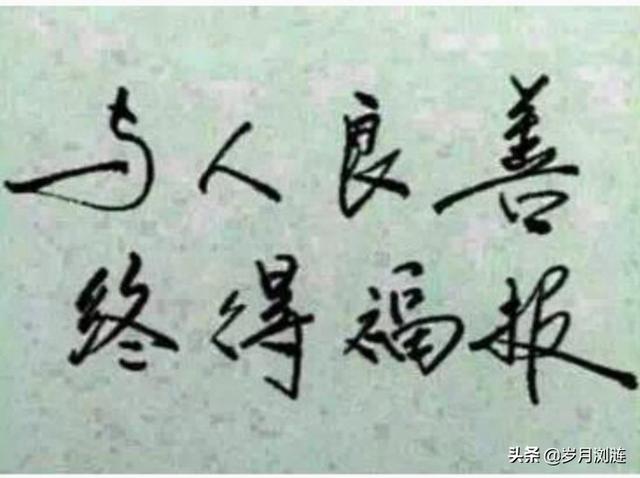 与人良善
终得福报
头条 @岁月浏涟